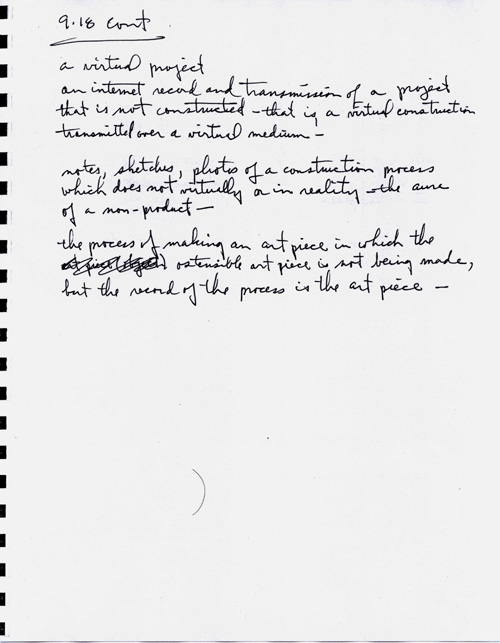 9.18 cont
a virtual project
an internet record and transmission of a project
that is not constructed - that is, a virtual construction
transmitted over a virtual medium -
notes, sketches, photos of a construction process
which does not virtually or in reality - the
of a non-product -
the process of making an art piece in which the
ostensible art piece is not being made,
but the record of the process is the art piece -